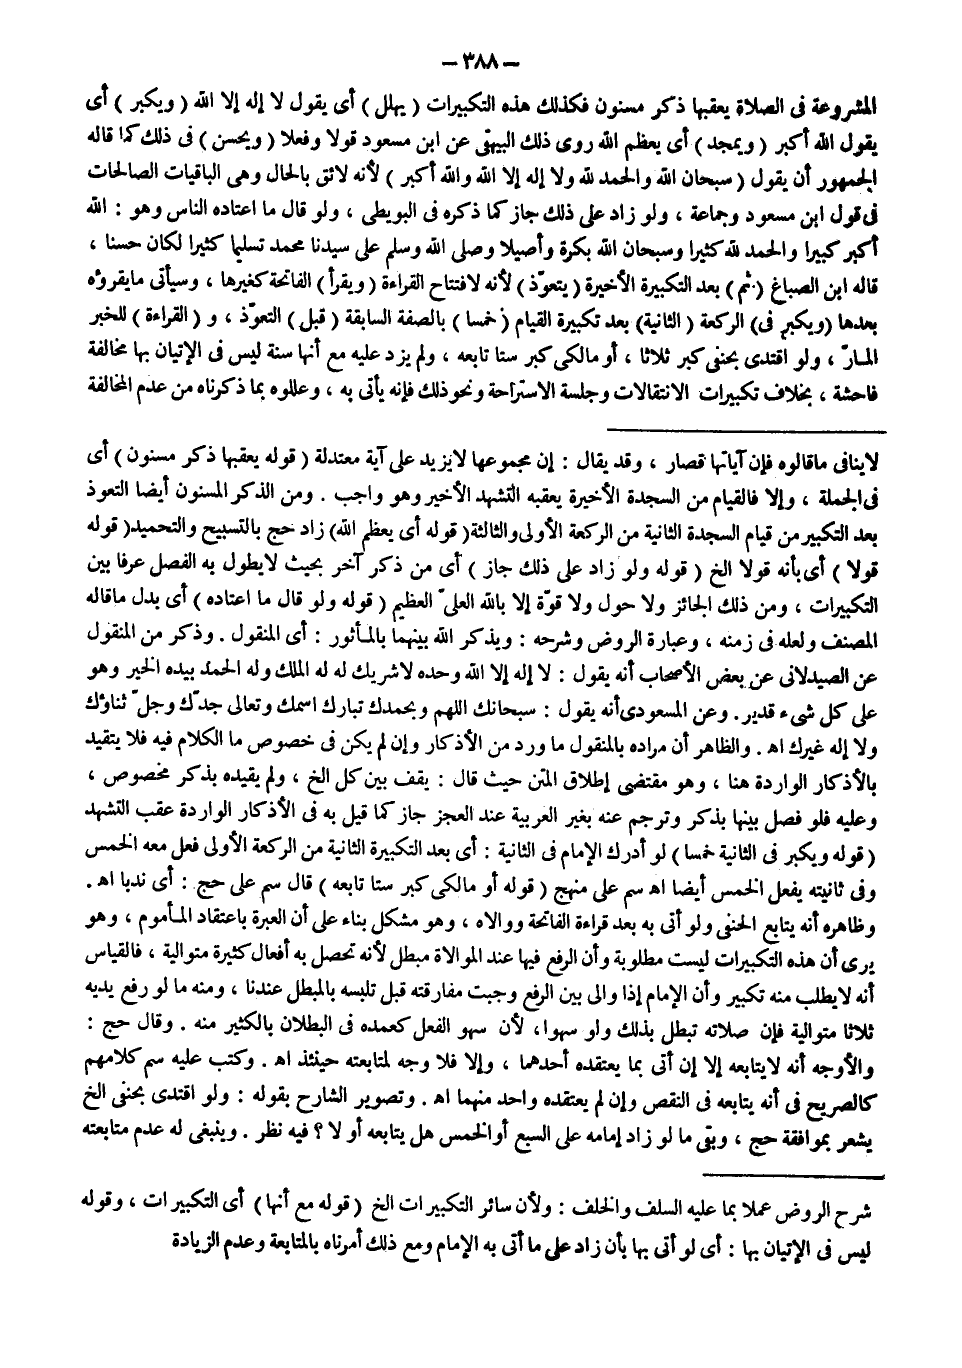 — ٣٨٨ —
المشروعة فى الصلاة يعقبها ذكر مسنون فكذلك هذه التكبيرات ( يهلل ) أى يقول لا إله إلا الله ( ويكبر ) أى
يقول الله أكبر ( ويمجد ) أى يعظم الله روى ذلك البيهقى عن ابن مسعود قولا وفعلا ( ويحسن ) فى ذلك كما قاله
الجمهور أن يقول ( سبحان الله والحمد لله ولا إله إلا الله والله أكبر ) لأنه لائق بالحال وهى الباقيات الصالحات
فى قول ابن مسعود وجماعة ، ولو زاد على ذلك جاز كما ذكره فى البويطى ، ولو قال ما اعتاده الناس وهو : الله
أكبر كبيرا والحمد لله كثيرا وسبحان الله بكرة وأصيلا وصلى الله وسلم على سيدنا محمد تسليما كثيرا لكان حسنا ،
قاله ابن الصباغ ( ثم ) بعد التكبيرة الأخيرة ( يتعوّذ ) لأنه لافتتاح القراءة ( ويقرأ ) الفاتحة كغيرها ، وسيأتى مايقرؤه
بعدها (ويكبر فى) الركعة ( الثانية) بعد تكبيرة القيام ( خمسا ) بالصفة السابقة ( قبل ) التعوّذ ، و ( القراءة ) للخبر
المـارّ ، ولو اقتدى بحنفى كبر ثلاثا ، أو مالكى كبر ستا تابعه ، ولم يزد عليه مع أنها سنة ليس فى الإتيان بها مخالفة
فاحشة ، بخلاف تكبيرات الانتقالات وجلسة الاستراحة ونحو ذلك فإنه يأتى به ، وعللوه بما ذكرناه من عدم المخالفة
لاينافى ماقالوه فإن آياتها قصار ، وقد يقال : إن مجموعها لايزيد على آية معتدلة ( قوله يعقبها ذكر مسنون ) أى
فى الجملة ، وإلا فالقيام من السجدة الأخيرة يعقبه التشهد الأخير وهو واجب . ومن الذكر المسنون أيضا التعوذ
بعد التكبير من قيام السجدة الثانية من الركعة الأولى والثالثة ( قوله أى يعظم الله) زاد حج بالتسبيح والتحميد ( قوله
قولا ) أى بأنه قولا الخ ( قوله ولو زاد على ذلك جاز ) أى من ذكر آخر بحيث لايطول به الفصل عرفا بين
التكبيرات ، ومن ذلك الجائز ولا حول ولا قوّة إلا بالله العلىّ العظيم ( قوله ولو قال ما اعتاده ) أى بدل ماقاله
المصنف ولعله فى زمنه ، وعبارة الروض وشرحه : ويذكر الله بينهما بالمـأثور : أى المنقول . وذكر من المنقول
عن الصيدلانى عن بعض الأصحاب أنه يقول : لا إله إلا الله وحده لاشريك له له الملك وله الحمد بيده الخير وهو
على كل شىء قدير. وعن المسعودى أنه يقول : سبحانك اللهم وبحمدك تبارك اسمك وتعالى جدّك وجلّ ثناؤك
ولا إله غيرك اه . والظاهر أن مراده بالمنقول ما ورد من الأذكار وإن لم يكن فى خصوص ما الكلام فيه فلا يتقيد
بالأذكار الواردة هنا ، وهو مقتضى إطلاق المتن حيث قال : يقف بين كل الخ ، ولم يقيده بذكر مخصوص ،
وعليه فلو فصل بينها بذكر وترجم عنه بغير العربية عند العجز جاز كما قيل به فى الأذكار الواردة عقب التشهد
( قوله ويكبر فى الثانية خمسا ) لو أدرك الإمام فى الثانية : أى بعد التكبيرة الثانية من الركعة الأولى فعل معه الخمس
وفى ثانيته يفعل الخمس أيضا اه سم على منهج ( قوله أو مالكى كبر ستا تابعه ) قال سم على حج : أى ندبا اه .
وظاهره أنه يتابع الحنفى ولو أتى به بعد قراءة الفاتحة ووالاه ، وهو مشكل بناء على أن العبرة باعتقاد المـأموم ، وهو
يرى أن هذه التكبيرات ليست مطلوبة وأن الرفع فيها عند الموالاة مبطل لأنه تحصل به أفعال كثيرة متوالية ، فالقياس
أنه لايطلب منه تكبير وأن الإمام إذا والى بين الرفع وجبت مفارقته قبل تلبسه بالمبطل عندنا ، ومنه ما لو رفع يديه
ثلاثا متوالية فإن صلاته تبطل بذلك ولو سهوا، لأن سهو الفعل كعمده فى البطلان بالكثير منه . وقال حج :
والأوجه أنه لايتابعه إلا إن أتى بما يعتقده أحدهما ، وإلا فلا وجه لمتابعته حينئذ اه . وكتب عليه سم كلامهم
كالصريح فى أنه يتابعه فى النقص وإن لم يعتقده واحد منهما اه . وتصوير الشارح بقوله : ولو اقتدى بحنفى الخ
يشعر بموافقة حج ، وبقى ما لو زاد إمامه على السبع أو الخمس هل يتابعه أو لا ؟ فيه نظر . وينبغى له عدم متابعته
شرح الروض عملا بما عليه السلف والخلف : ولأن سائر التكبيرات الخ ( قوله مع أنها ) أى التكبيرات ، وقوله
ليس فى الإتيان بها : أى لو أتى بها بأن زاد على ما أتى به الإمام ومع ذلك أمرناه بالمتابعة وعدم الزيادة